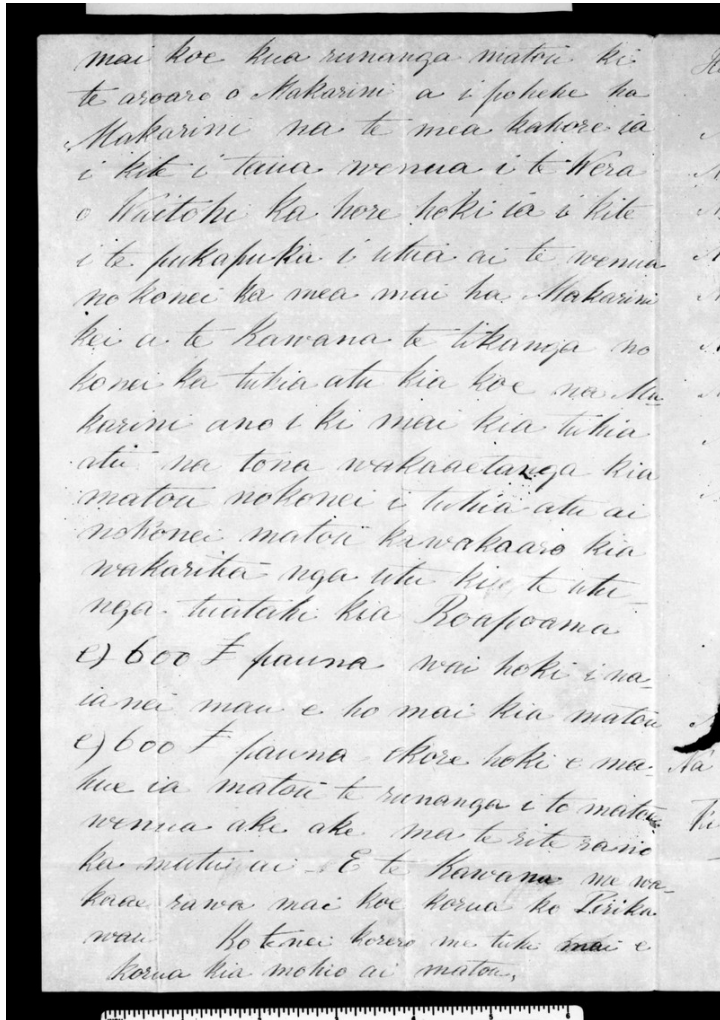 mai koe kua runanga matou ki
te aroaro o Makarini a i pohehe ha
Makarini na te mea kahore ia
i kite i taua wenua i te Wera
o Waitohi ka hore hoki ia i kite
i te pukapuka i utua ai te wenua
no konei ka mea mai ha Makarini
kei a te Kawana te tikanga no
konei ka tuhia atu kia koe na Ma-
karini ano i ki mai kia tuhia
atu na tona wakaaetanga kia
matou nokonei i tuhia atu ai
nokonei matou ka wakaaro kia
wakaritea nga utu ki te utu-
nga tuatahi kia Roapoama
e) 600 £ pauna wai hoki i na-
ianei mau e ho mai kia matou
e) 600 £ pauna ekore hoki e ma-
hue ia matou te runanga i to matou
wenua ake ake ma te rite rano
ka mutu ai - E te Kawana me wa-
kaae rawa mai koe korua ko Tirika
wau Ko tenei korero me tuhi mai e
korua kia mohio ai matou,
Na